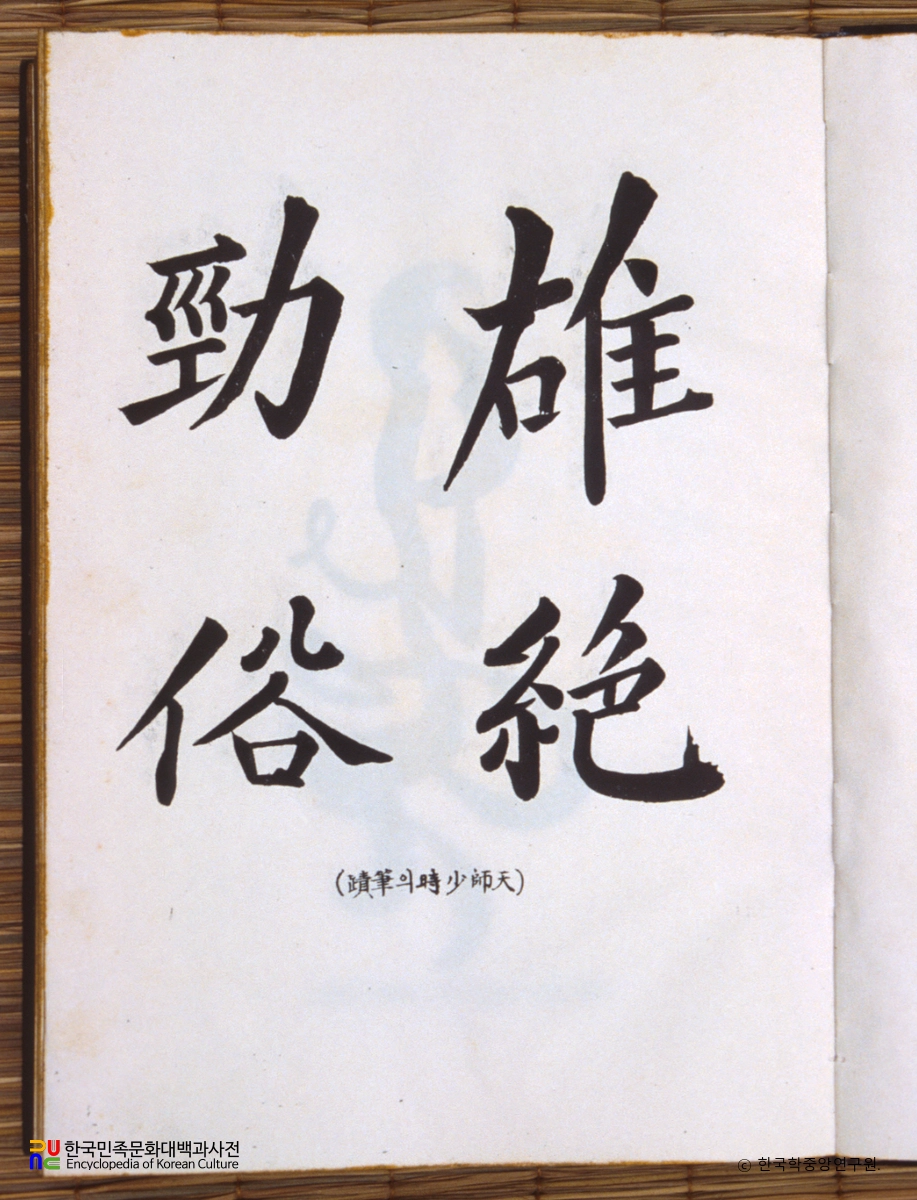 雄勁
絶俗
(天師少時의筆蹟)
한국민족문화대백과사전
Encyclopedia of Korean Culture
© 한국학중앙연구원.